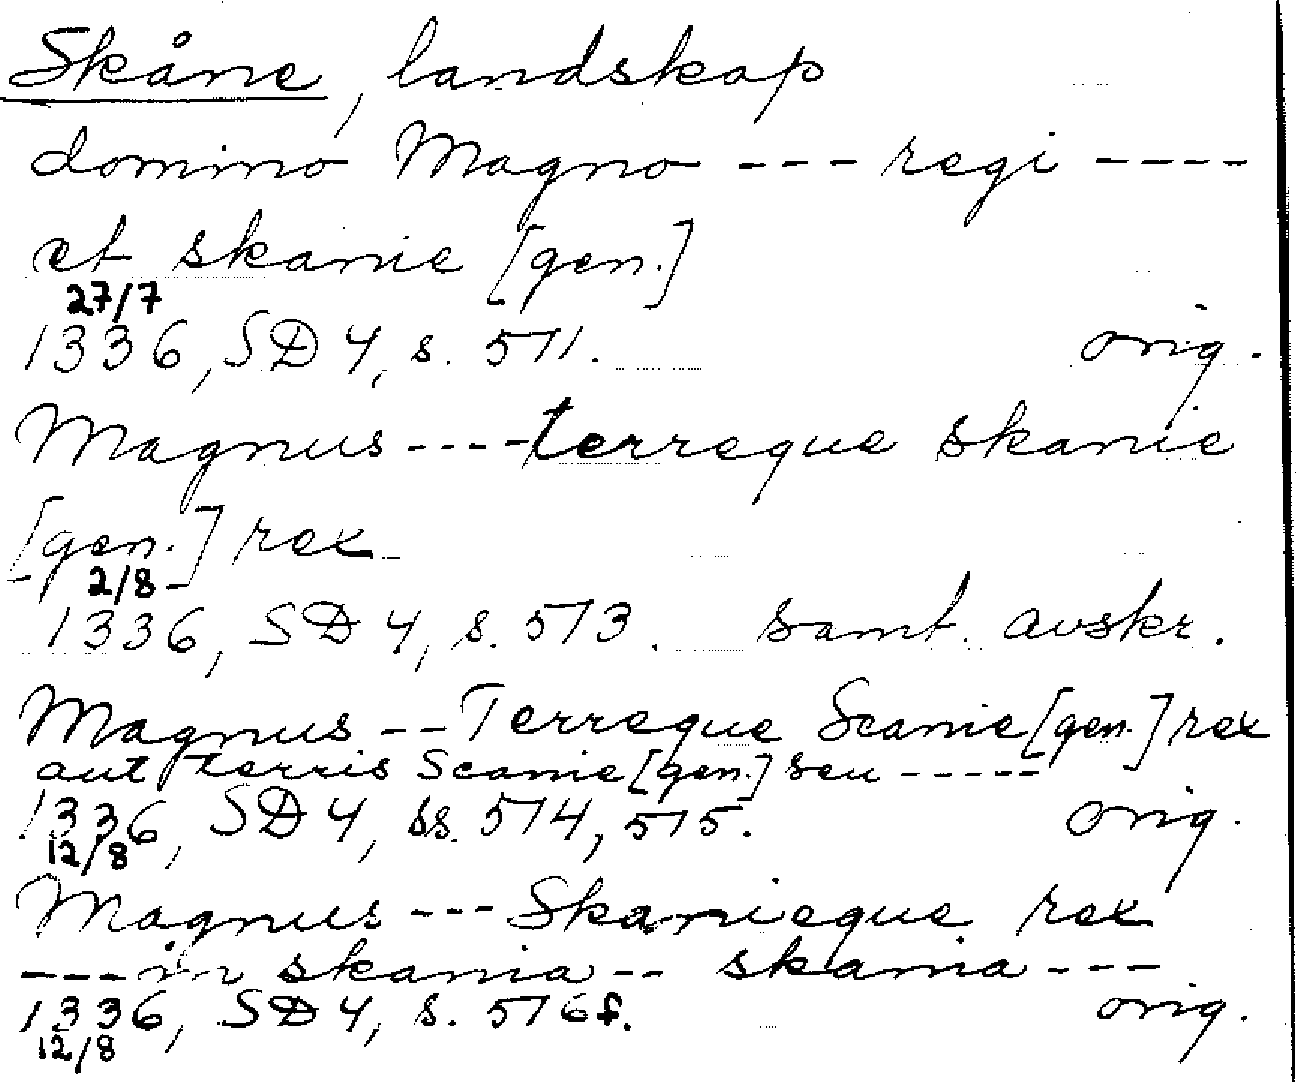 Skåne, landskap
domino Magno --- regi ----
et skanie [gen.]
27/7
1336, SD 4, s. 571. orig.
Magnus ---- terreque skanie
[gen.] rex
2/8
1336, SD 4, s. 573. samt. avskr.
Magnus -- Terreque Scanie [gen.] rex
aut terris Scanie [gen.] seu -----
1336, SD 4, ss. 574, 575. orig.
12/8
Magnus --- Skanieque rex
--- in skania -- skania ---
1336, SD 4, s. 576 f. orig.
12/8